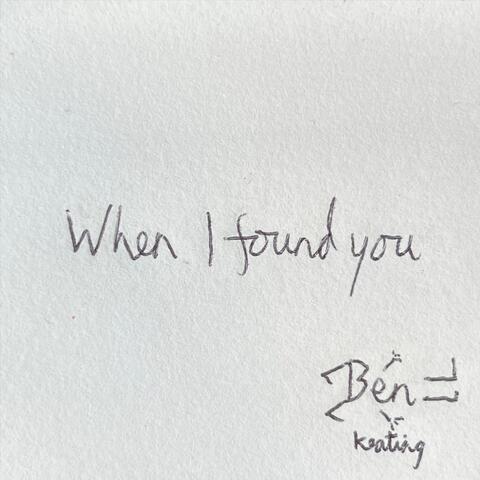 When I found you
Ben
Keating